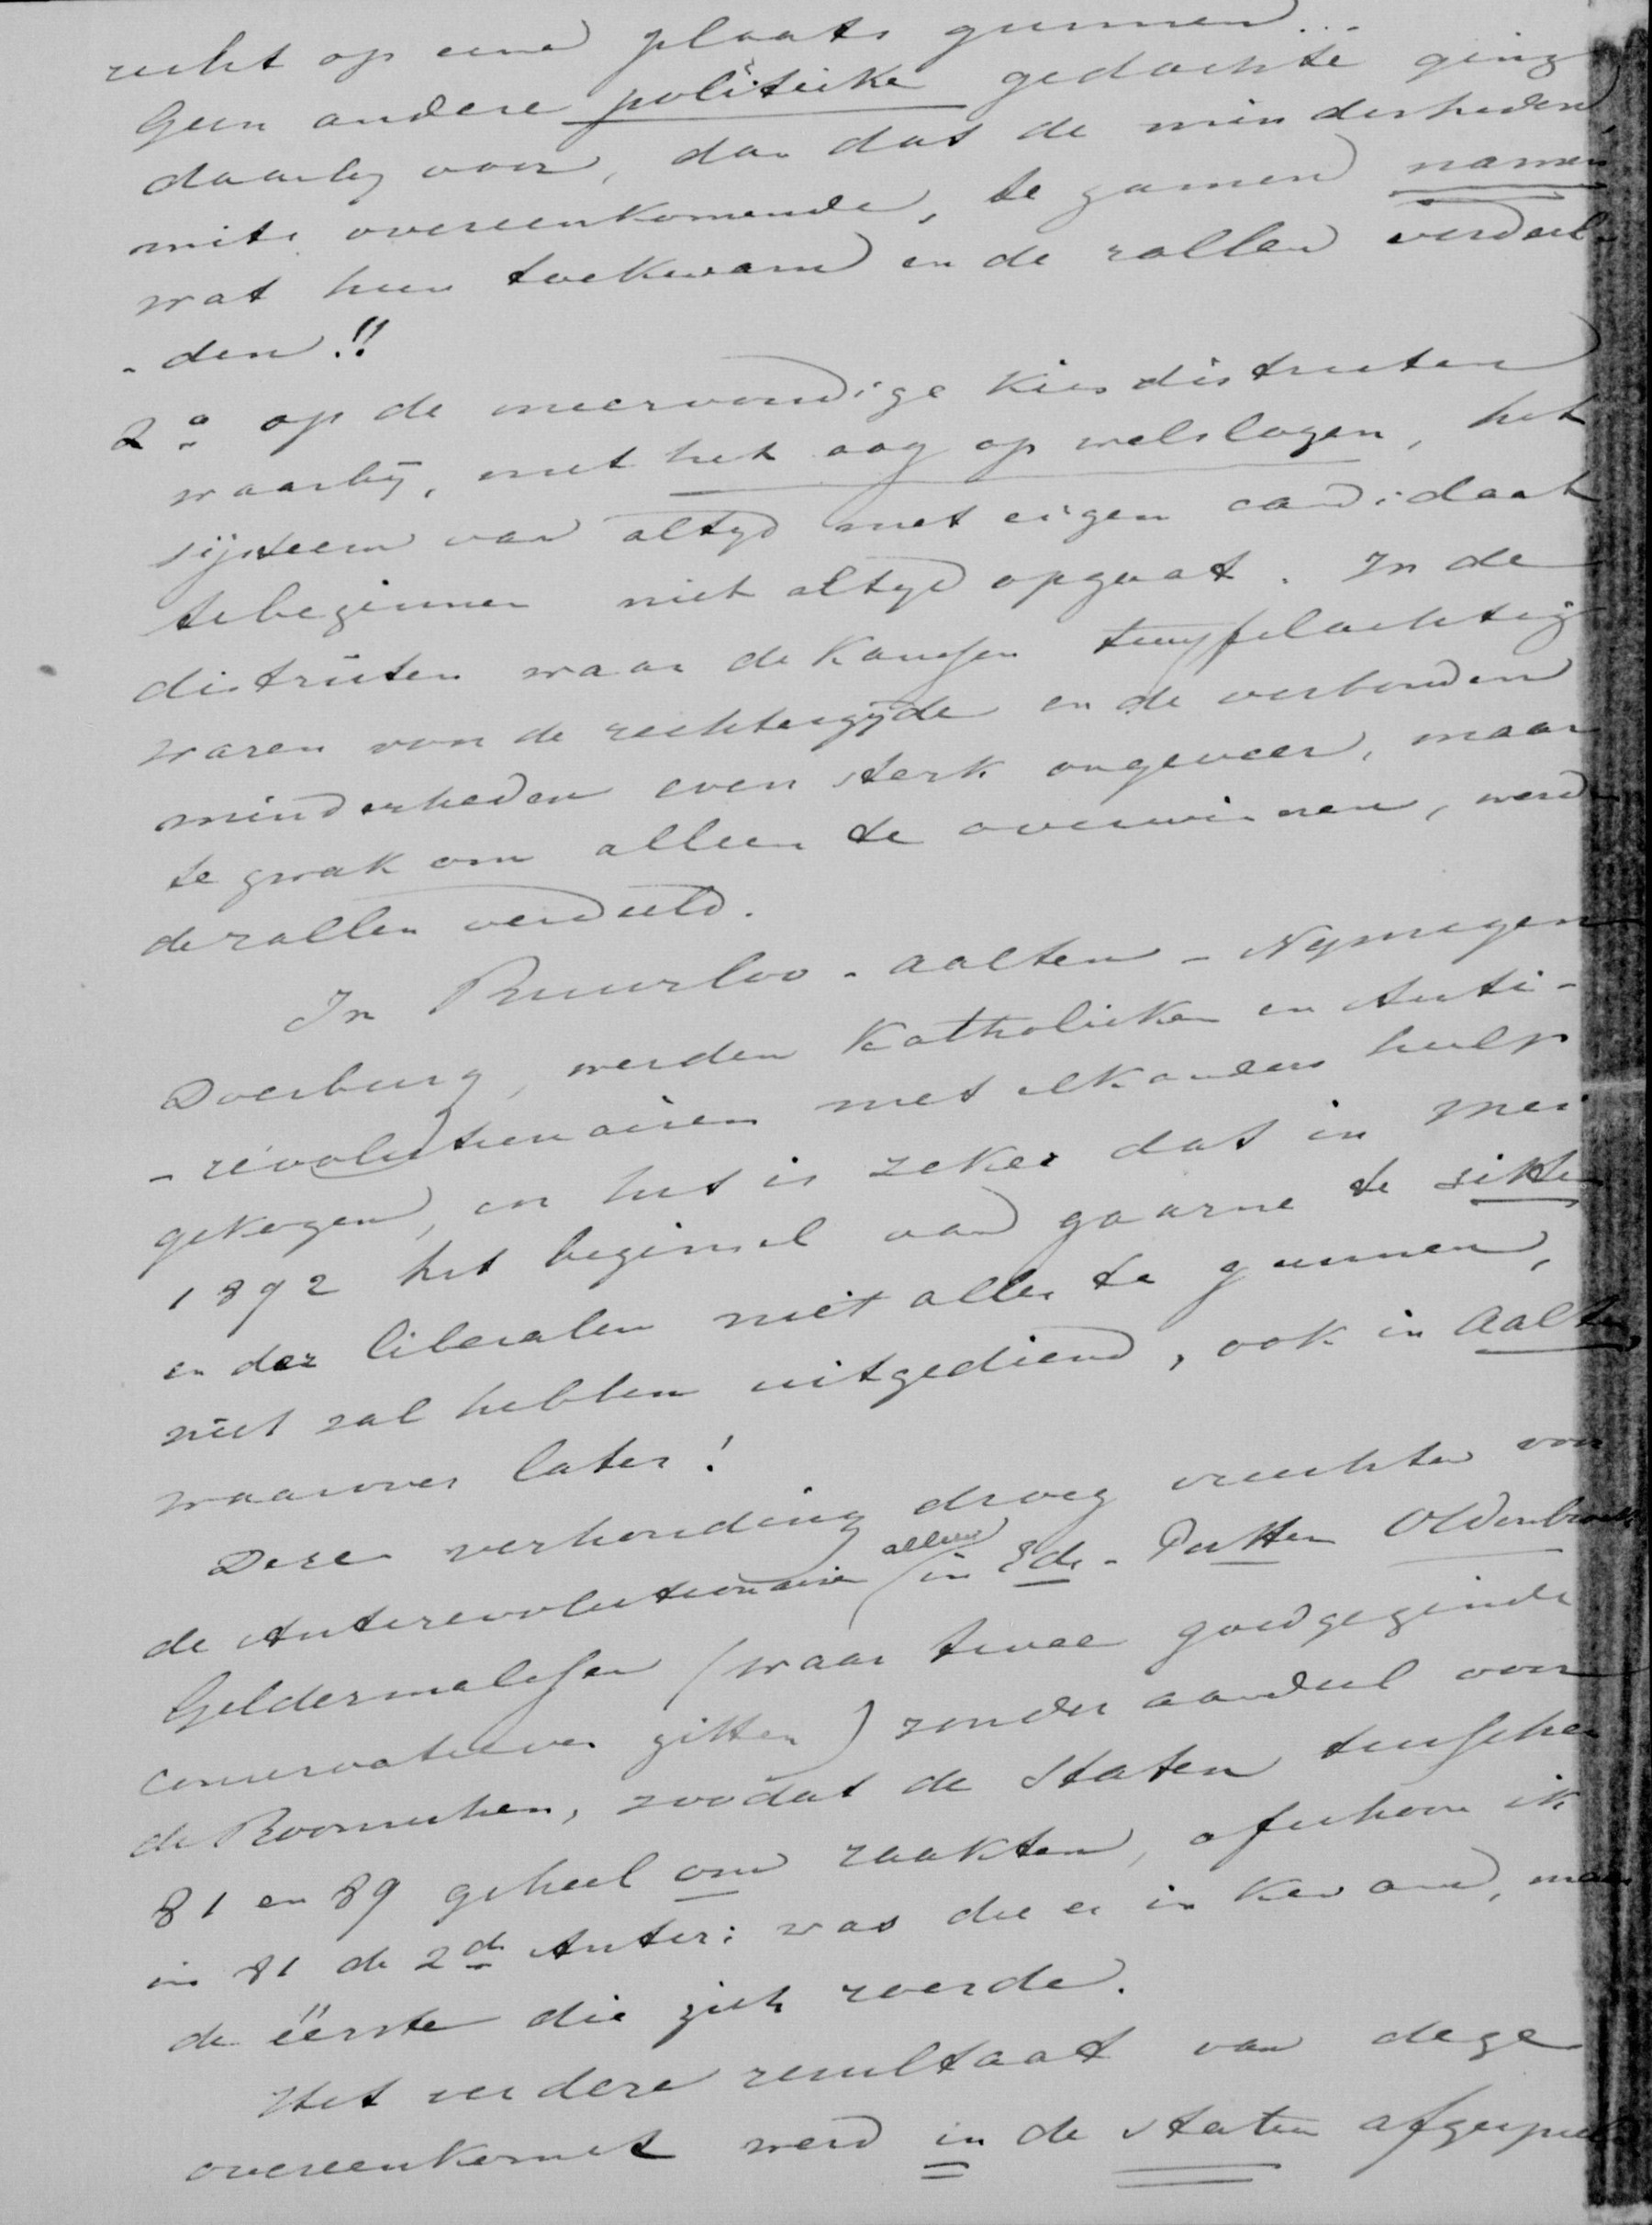 recht op eene plaats gunnen...
Geen andere politieke gedachte ging
daarbij voor, dan dat de minderheden,
mits overeenkomende, te zamen namen
wat hun toekwam en de rollen verdeel-
-den!!
2o op de meervoudige Kiesdistricten
waarbij, met het oog op welslagen, het
systeem van altyd met eigen candidaat
te beginnen niet altyd opgaat. In de
districten waar de Kansen twyfelachtig
waren van de rechterzyde en de verbonden
minderheden even sterk ongeveer, maar
te zwak om alleen te overwinnen, werd-
de rollen verdeeld.
In Ruurloo - Aalten - Nymegen
Doesburg, werden Katholieken en Anti-
-revolutionairen met elkanders hulp
gekozen, en het is zeker dat in Mei
1892 het beginsel van gaarne te zitten
en der liberalen niet alles te gunnen,
niet zal hebben uitgediend, ook in Aalten,
waarover later!
Deze verhouding droeg vruchten voor
de Antirevolutionairen alleen in Ede - Putten Oldenbroek
Geldermalsen (waar twee goedgezinde
conservatieven zitten) zonder aandeel voor
de Roomschen, zoodat de Staten tusschen
81 en 89 geheel om raakten, ofschoon ik
in 81 de 2de Antir: was die er in kwam, maar
de eerste die zich roerde.
Het verdere resultaat van deze
overeenkomst werd in de Staten